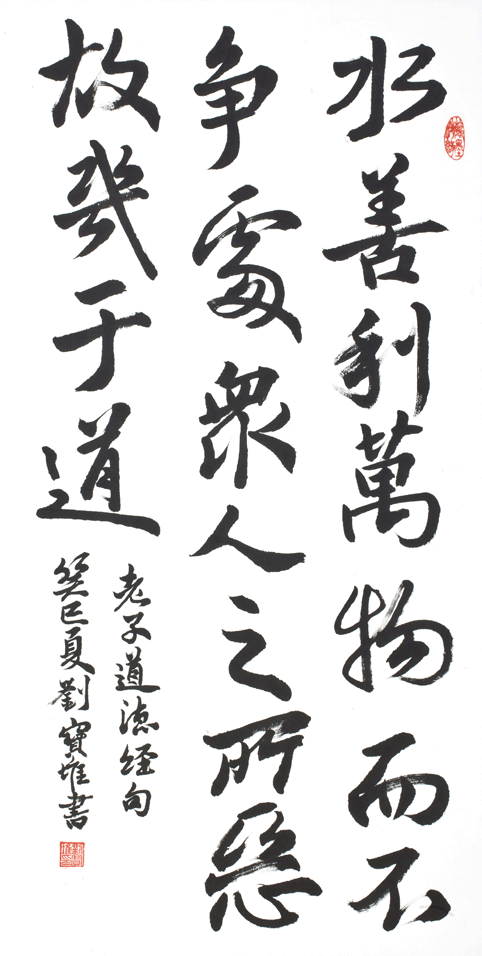 水善利萬物而不
争處衆人之所惡
故幾于道
老子道德经句
癸巳夏劉寶書